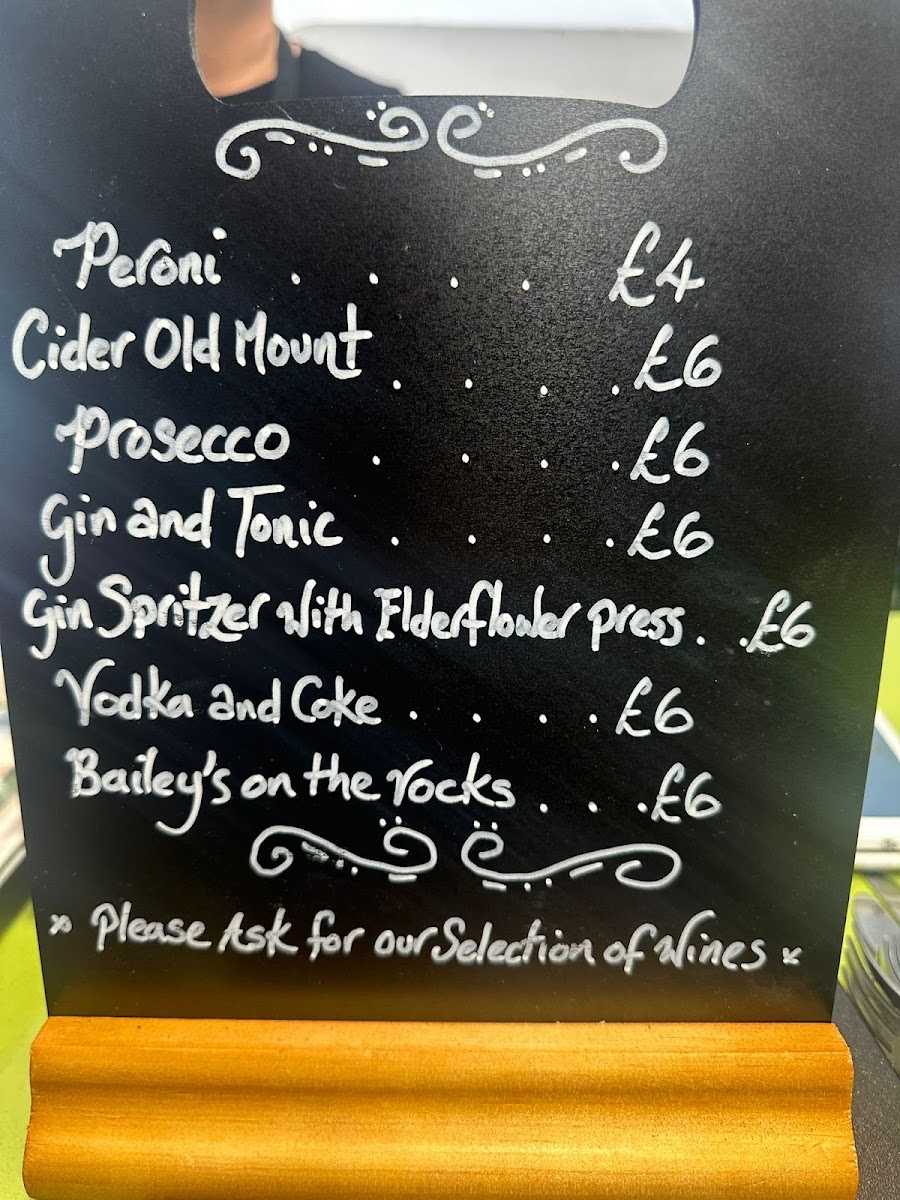 Peroni . . . . £4
Cider Old Mount . . . . £6
Prosecco . . . . £6
Gin and Tonic . . . . £6
Gin Spritzer With Elderflower press . . £6
Vodka and Coke . . . . £6
Bailey's on the rocks . . . £6
Please Ask for our Selection of Wines